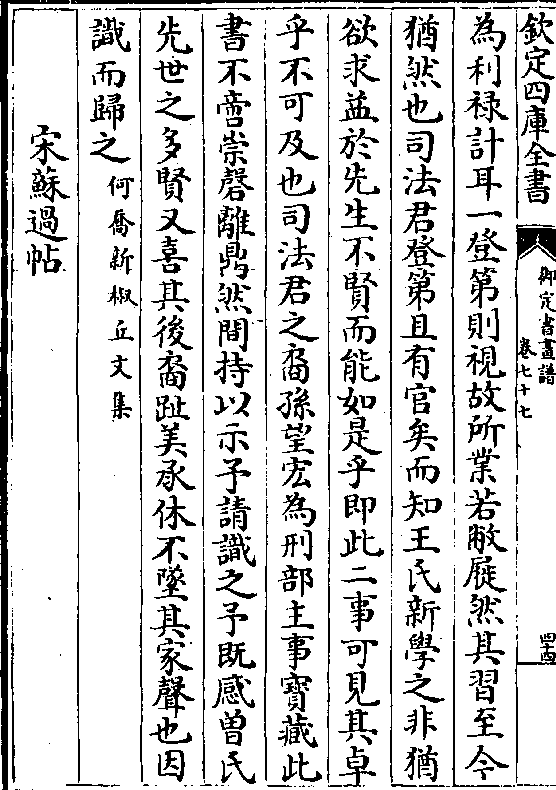 欽定四庫全書
御定書畫譜
卷七十七
四十四
為利祿計耳一登第則視故所業若敝屣然其習至今
猶然也司法君登第且有官矣而知王氏新學之非猶
欲求益於先生不賢而能如是乎即此二事可見其卓
乎不可及也司法君之裔孫望宏為刑部主事寶藏此
書不啻崇罄離鼎然間持以示予請識之予既感曽氏
先世之多賢又喜其後裔趾美承休不墜其家聲也因
識而歸之何喬新椒丘文集
宋蘇過帖